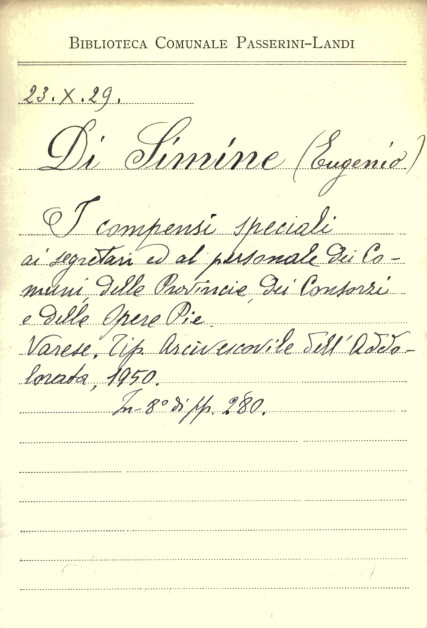 BIBLIOTECA COMUNALE PASSERINI-LANDI
23.X.29.
Di Simine (Eugenio)
I compensi speciali
ai segretari ed al personale dei Co-
muni, delle Provincie, dei Consorzi
e delle Opere Pie.
Varese, Tip. Arcivescovile dell'Addo-
lorata, 1950.
In-8° di pp. 280.